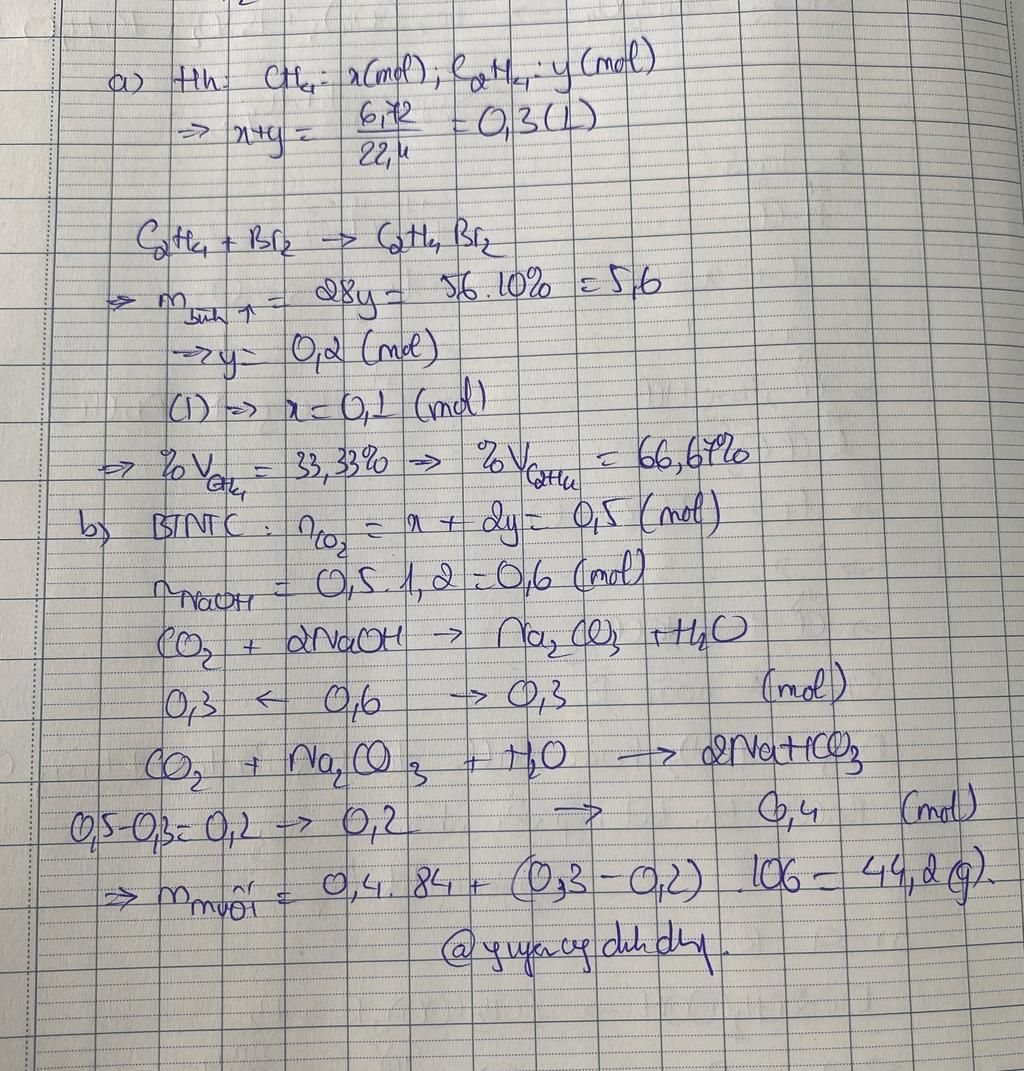 a) Hh: CH₄: x(mol); C₂H₄: y(mol)
⇒ x+y = 6,72/22,4 = 0,3(1)
C₂H₄ + Br₂ → C₂H₄Br₂
⇒ m bình ↑ = 28y = 56.10% = 5,6
→ y = 0,2 (mol)
(1) ⇒ x = 0,1 (mol)
⇒ %V CH₄ = 33,33% ⇒ %V C₂H₄ = 66,67%
b) BTNTC: nCO₂ = x + 2y = 0,5 (mol)
nNaOH = 0,5.1,2 = 0,6 (mol)
CO₂ + 2NaOH → Na₂CO₃ + H₂O
0,3 ← 0,6 → 0,3 (mol)
CO₂ + Na₂CO₃ + H₂O → 2NaHCO₃
0,5-0,3= 0,2 → 0,2 → 0,4 (mol)
⇒ m muối = 0,4.84 + (0,3 - 0,2).106 = 44,2(g).